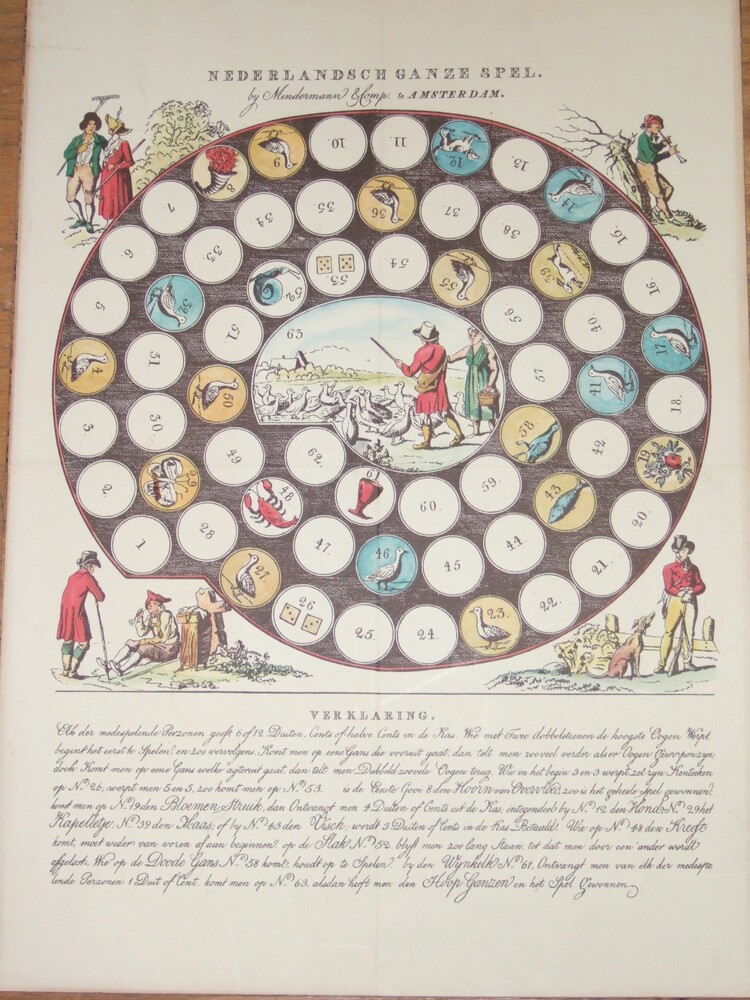 NEDERLANDSCH GANZE SPEL.
by Mindermann & Comp. te AMSTERDAM.
1
2.
3.
4
5.
6.
7.
8
9
10.
11.
12.
13.
14
15.
16.
17
18.
19
20.
21.
22.
23.
24.
25.
26
27
28
29
30.
31.
32
33.
34
35.
36
37.
38.
39
40.
41
42.
43
44.
45
46
47.
48
49
50
51
52
53.
54.
55
56.
57
58
59.
60.
61
62.
63
VERKLARING.
Elk der medespelende Perzonen geeft 6 of 12 Duiten, Cents of halve Cents in de Kas. Wie met Twee dobbelsteenen de hoogste Oogen Werpt,
begint het eerst te Spelen, en zoo vervolgens. Komt men op eene Gans die vooruit gaat, dan telt men zooveel verder als er Oogen Geworpen zyn,
doch Komt men op eene Gans welke agteruit gaat, dan telt men Dubbeld zoovele Oogen terug. Wie in het begin 3 en 3 werpt zet zyn Kenteeken
op No. 26, werpt men 5 en 5, zoo komt men op No. 53. is de Eerste Gooi 8 den Hoorn van Overvloed, zoo is het geheele Spel gewonnen,
komt men op No. 19 den Bloemen-Struik, dan Ontvangt men 4 Duiten of Cents uit de Kas, integendeel by No. 12 den Hond; No. 29 het
Kapelletje, No. 39 den Haas; of by No. 43 den Visch, wordt 3 Duiten of Cents in de Kas Betaald. Wie op No. 48 den Kreeft
komt, moet weder van voren af aan beginnen, op de Slak No. 52, blyft men zoo lang Staan, tot dat men door een' ander wordt
afgelost. Wie op de Doode Gans No. 58 komt, houdt op te Spelen, by den Wynkelk No. 61, Ontvangt men van elk der medespe-
lende Perzonen 1 Duit of Cent. komt men op No. 63, alsdan heeft men den Hoop Ganzen en het Spel Gewonnen.